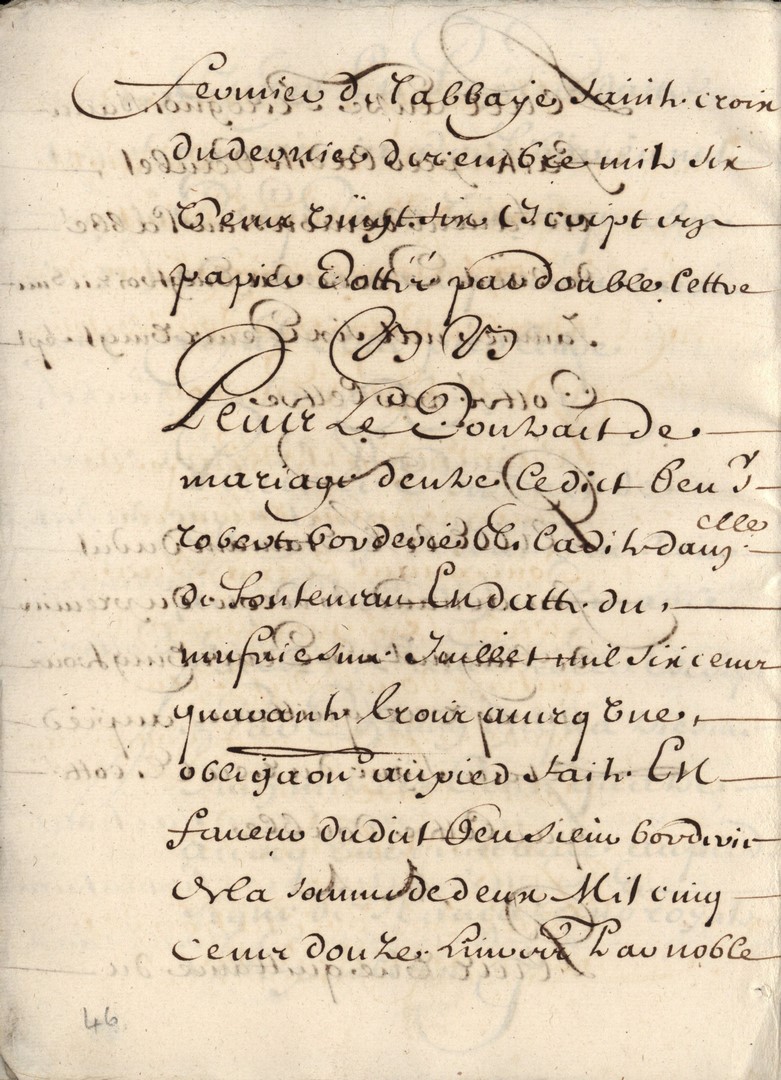 fermier de l'abbaye sainte croix
du dernier decembre mil six
cens vingt six escript en
papier cotté par double lettre
Plus Le Contract de
mariage d'entre ledict feu Sr
robert borderie & ladite dam elle
de fonteneau En datte du
neufviesme Juillet mil six cens
quarante trois avecq une
obliga[ti]on au pied faite En
faveur dudict feu sieur borderie
de la somme de deux Mil cinq
cens douze livres par noble
46